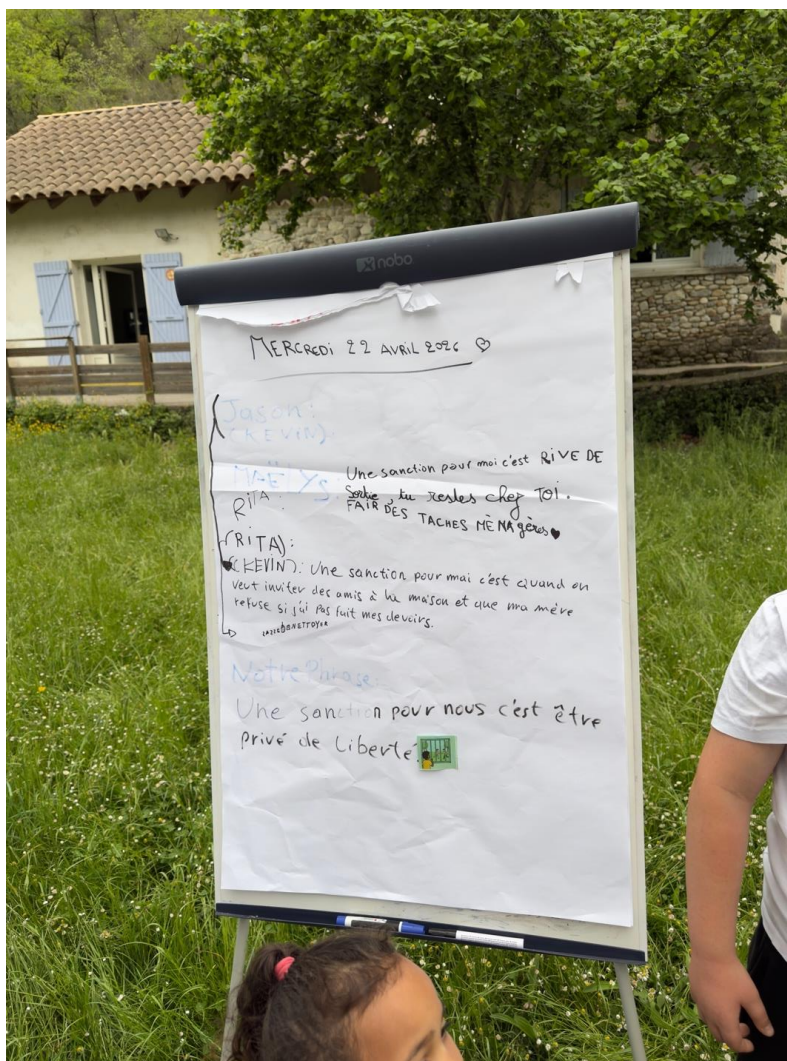 nobo
MERCREDI 22 AVRIL 2026
Jason:
(KEVIN):
MAËLYS: Une sanction pour moi c'est RIVE DE
RITA: Sortie, tu restes chez TOI.
FAIR DES TACHES MÈNAgères
(RITA):
(KEVIN): Une sanction pour mai c'est quand on
veut inviter des amis à la maison et que ma mère
refuse si j'ai pas fait mes devoirs.
Notre Phrase:
Une sanction pour nous c'est être
privé de Liberté.